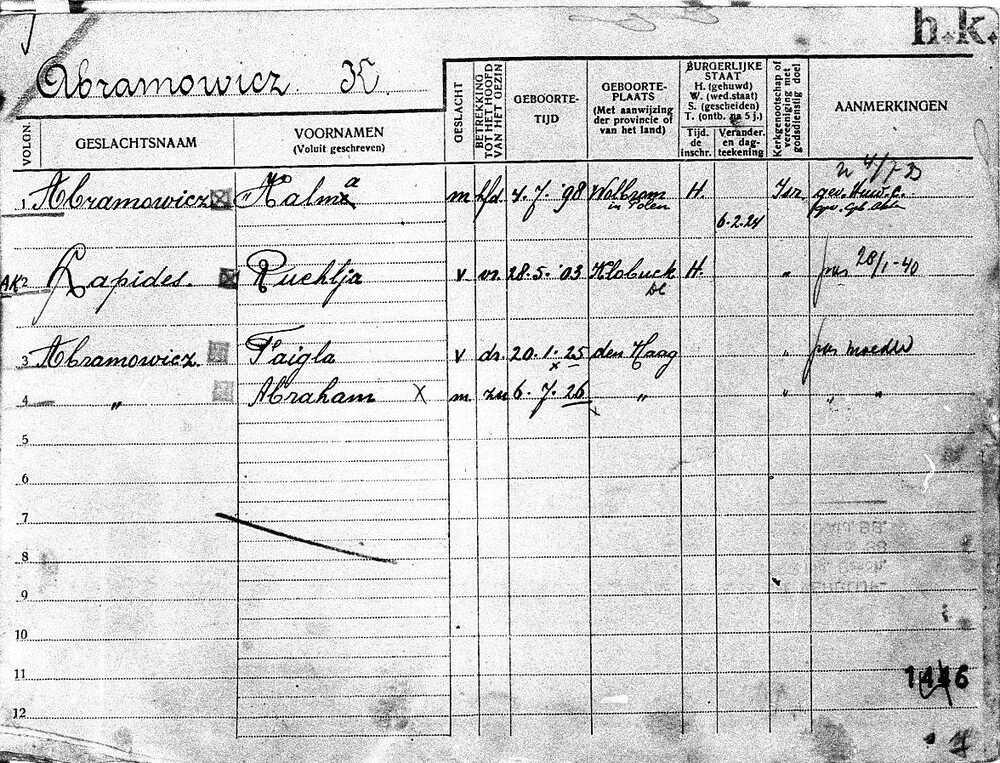 h.k.
Abramowicz K.
VOLGN.
GESLACHTSNAAM
VOORNAMEN
(Voluit geschreven)
GESLACHT
BETREKKING TOT HET HOOFD VAN HET GEZIN
GEBOORTE-
TIJD
GEBOORTE-
PLAATS
(Met aanwijzing
der provincie of
van het land)
BURGERLIJKE
STAAT
H. (gehuwd)
W. (wed.staat)
S. (gescheiden)
T. (ontb. na 5 j.)
Tijd.
de
inschr.
Verander.
en dag-
teekening
Kerkgenootschap of
vereeniging met
godsdienstig doel
AANMERKINGEN
1 Abramowicz Kalma m hfd. 4. 7. '98 Wolbrom H. Isr.
in Polen
6-2-24
AK 2 Rapides. Ruchlja v vr. 28.5.'03 Klobuck H. " 28/1-40
3 Abramowicz. Faigla v dr. 20.1.25 den Haag " moeder
4 " Abraham X m zn 6. 7. 26 " " " "
5
6
7
8
9
10
11
12